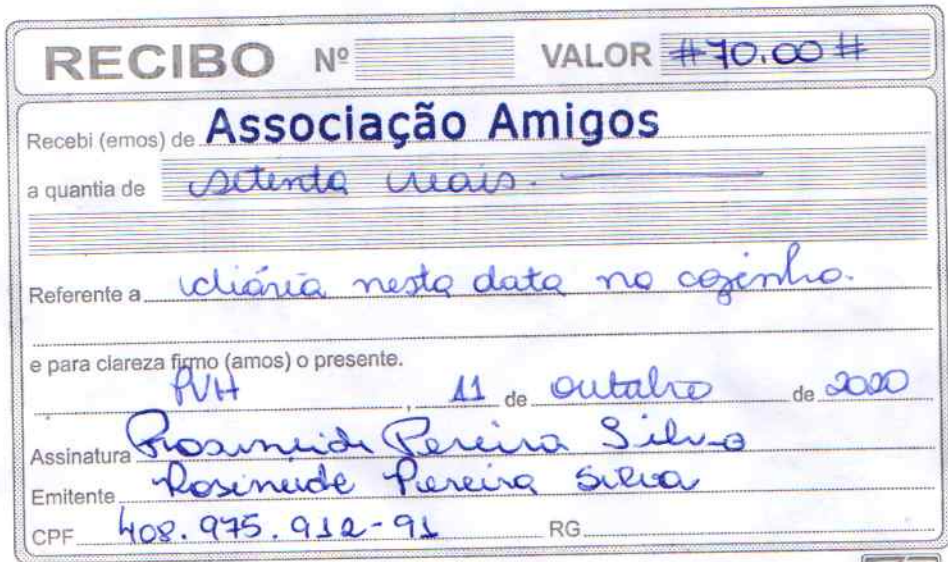 RECIBO Nº VALOR #70.00#
Recebi (emos) de Associação Amigos
a quantia de setenta reais.
Referente a diária nesta data na cozinha.
e para clareza firmo (amos) o presente.
PVH, 11 de outubro de 2020
Assinatura Rosineide Pereira Silva
Emitente Rosineide Pereira Silva
CPF 408.975.912-91 RG